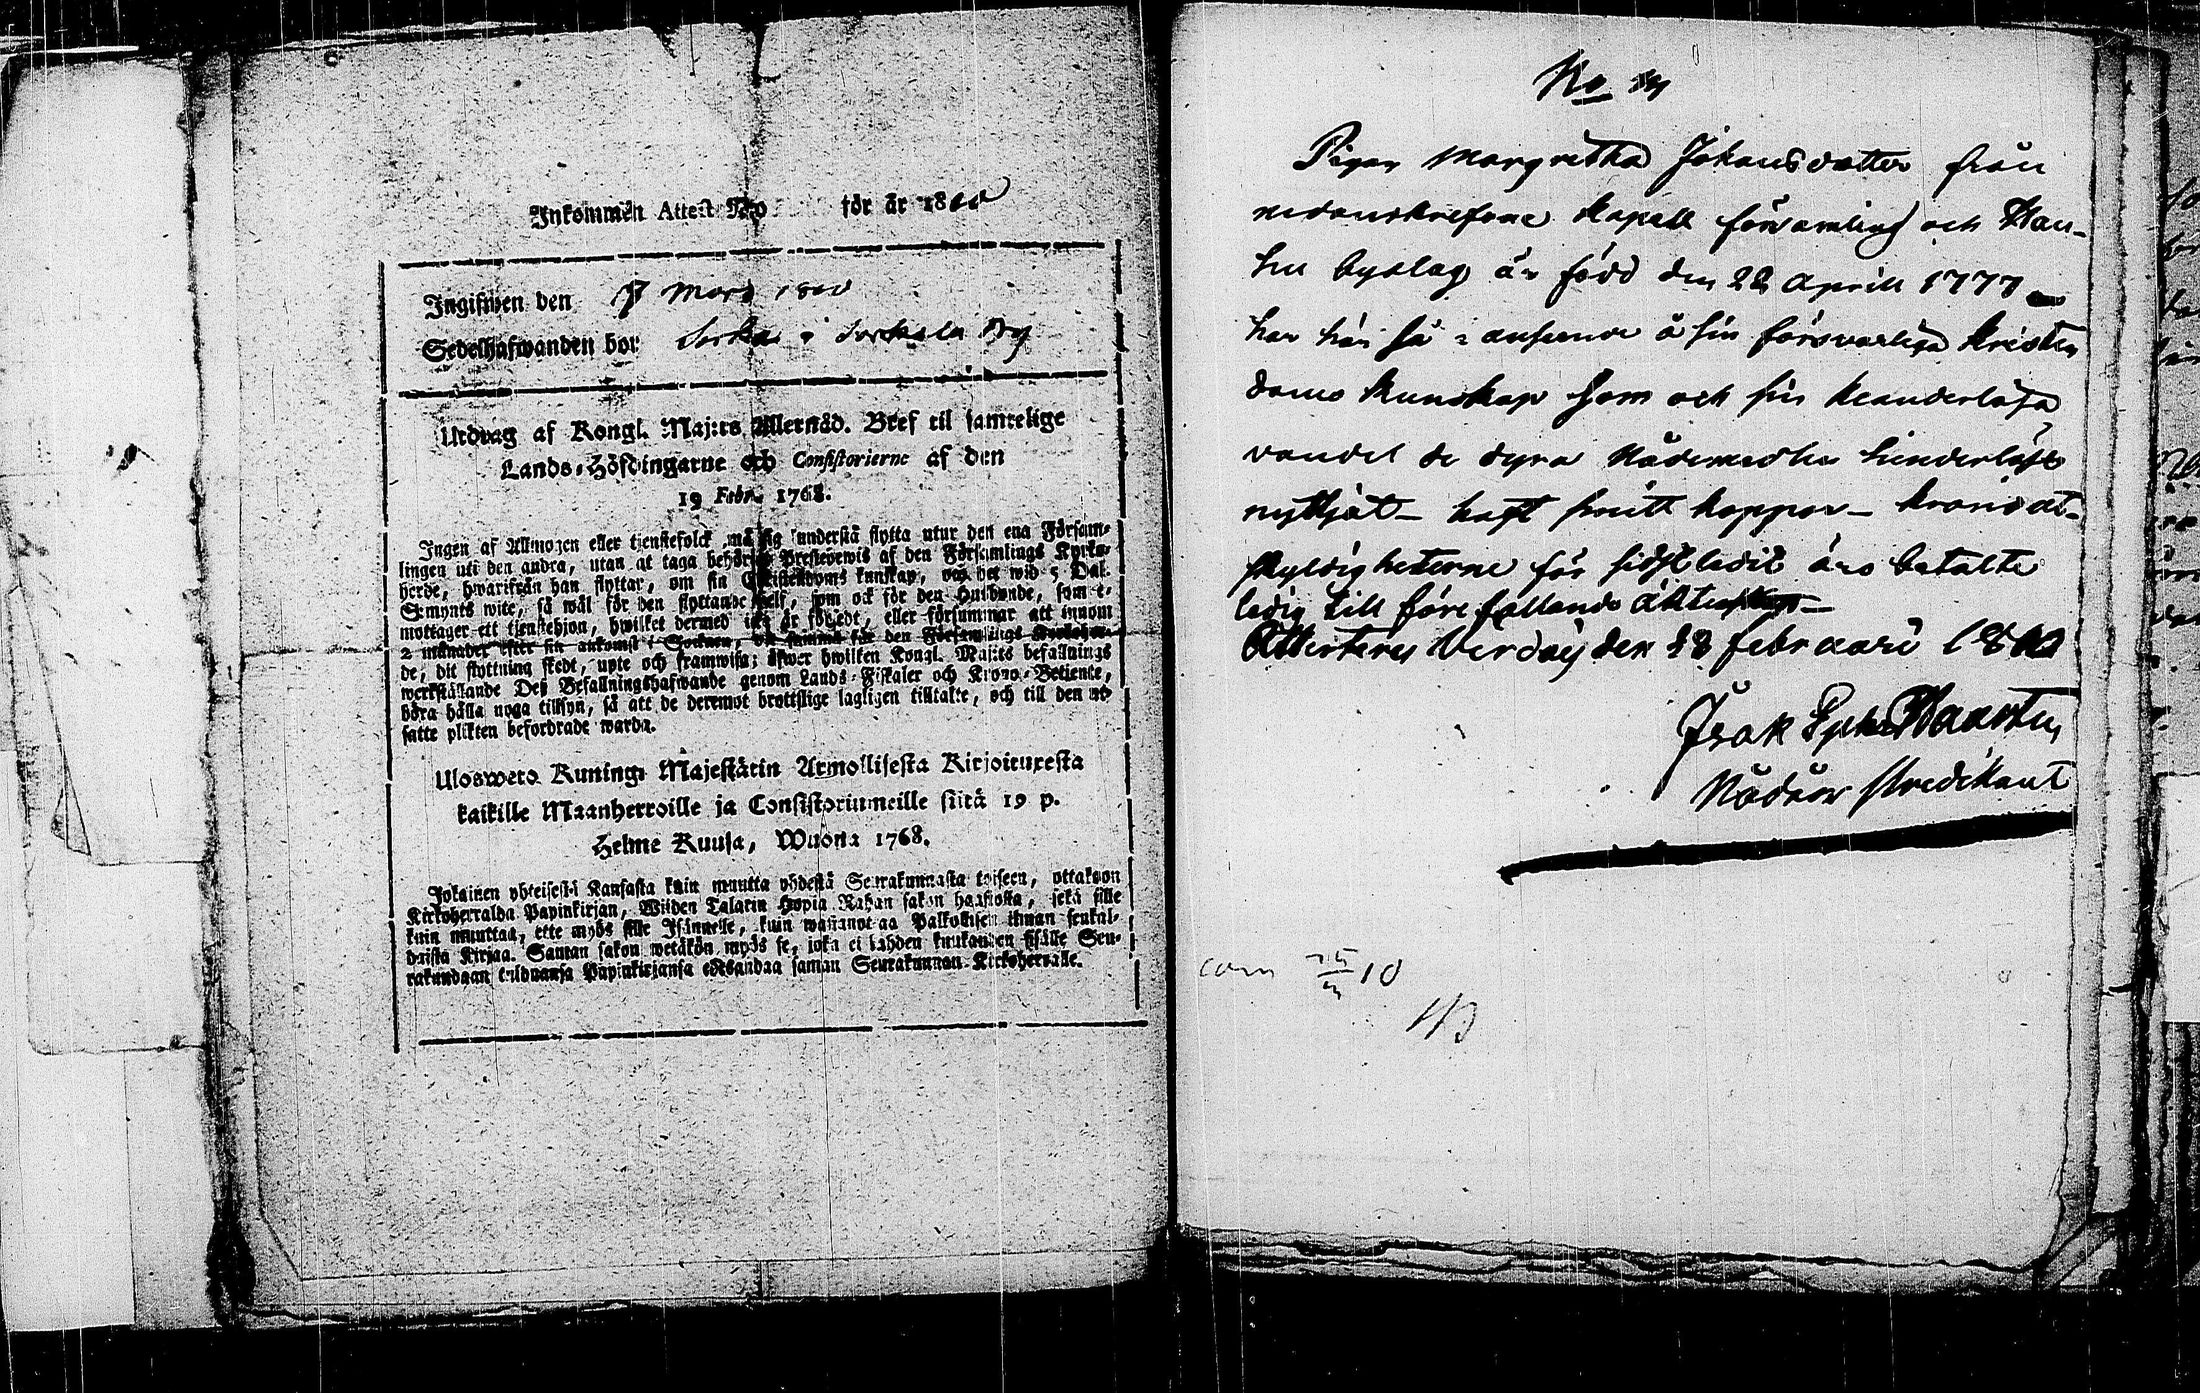 Inkommen Attest No för år 1800
Ingifwen den Mars 1800
Sedelhafwanden bor i Sorkala By
Utdrag af Kongl. Maj:ts Allernåd. Bref til samtelige
Lands-Höfdingarne och Consistorierne af den
19 Febr. 1768.
Ingen af Allmogen eller tjenstefolck må sig understå flytta utur den ena Försam-
lingen uti den andra, utan at taga behörigt Prestebewis af den Församlings Kyrko-
herde, hwarifrån han flyttar, om sin Christendoms kunskap, och det wid 5 Dal.
S:rmynts wite, så wäl för den flyttande self, som ock för den Husbonde, som e-
mottager ett tjenstehjon, hwilket dermed icke är försedt, eller försummar att innom
2 månader efter sin ankomst i Socknen, det samma för den Församlings Kyrkoher-
de, dit flyttning skedt, upte och framwisa; äfwer hwilken Kongl. Maj:ts befallnings
werkställande Deß Befallningshafwande genom Lands-Fiskaler och Krono-Betiente,
böra hålla noga tillsyn, så att de deremot brottslige lagligen tilltalte, och till den ut-
satte plikten befordrade warda.
Ulosweto Kuning. Majestätin Armollisesta Kirjoituxesta
kaikille Maanherroille ja Consistoriumeille siitä 19 p.
Helme Kuusa, Wuona 1768.
Jokainen yhteisestä Kansasta kuin muutta yhdestä Seurakunnasta toiseen, ottakoon
Kirkoherralda Papinkirjan, Wiiden Talarin Hopia Rahan sakon haastolla, sekä sille
kuin muuttaa, ette myös sille Isännelle, kuin wastanottaa Palkollisen ilman senkal-
daista Kirjaa. Saman sakon wetäkön myös se, joka ei kahden kuukauden sisälle Seu-
rakundaan tulduansa Papinkirjansa edesandaa saman Seurakunnan Kirkoherralle.
No
Pigan Margretha Johansdotter från
nedanskrefne kapell församling och Hau-
hu byslag är född den 22 Aprill 1777
har här så i anseende å sin försvarliga kristen
doms kunskap som och sin klanderlösa
vandel de dyra Nådemedlen hinderlöst
nyttjat – haft koppor – kronout-
skyldigheterne för sidstledit års betalte
ledig till före fallande äktenskap –
Attesteras Verdoij den 28 februarii 1800
Isak
predikant
com 10